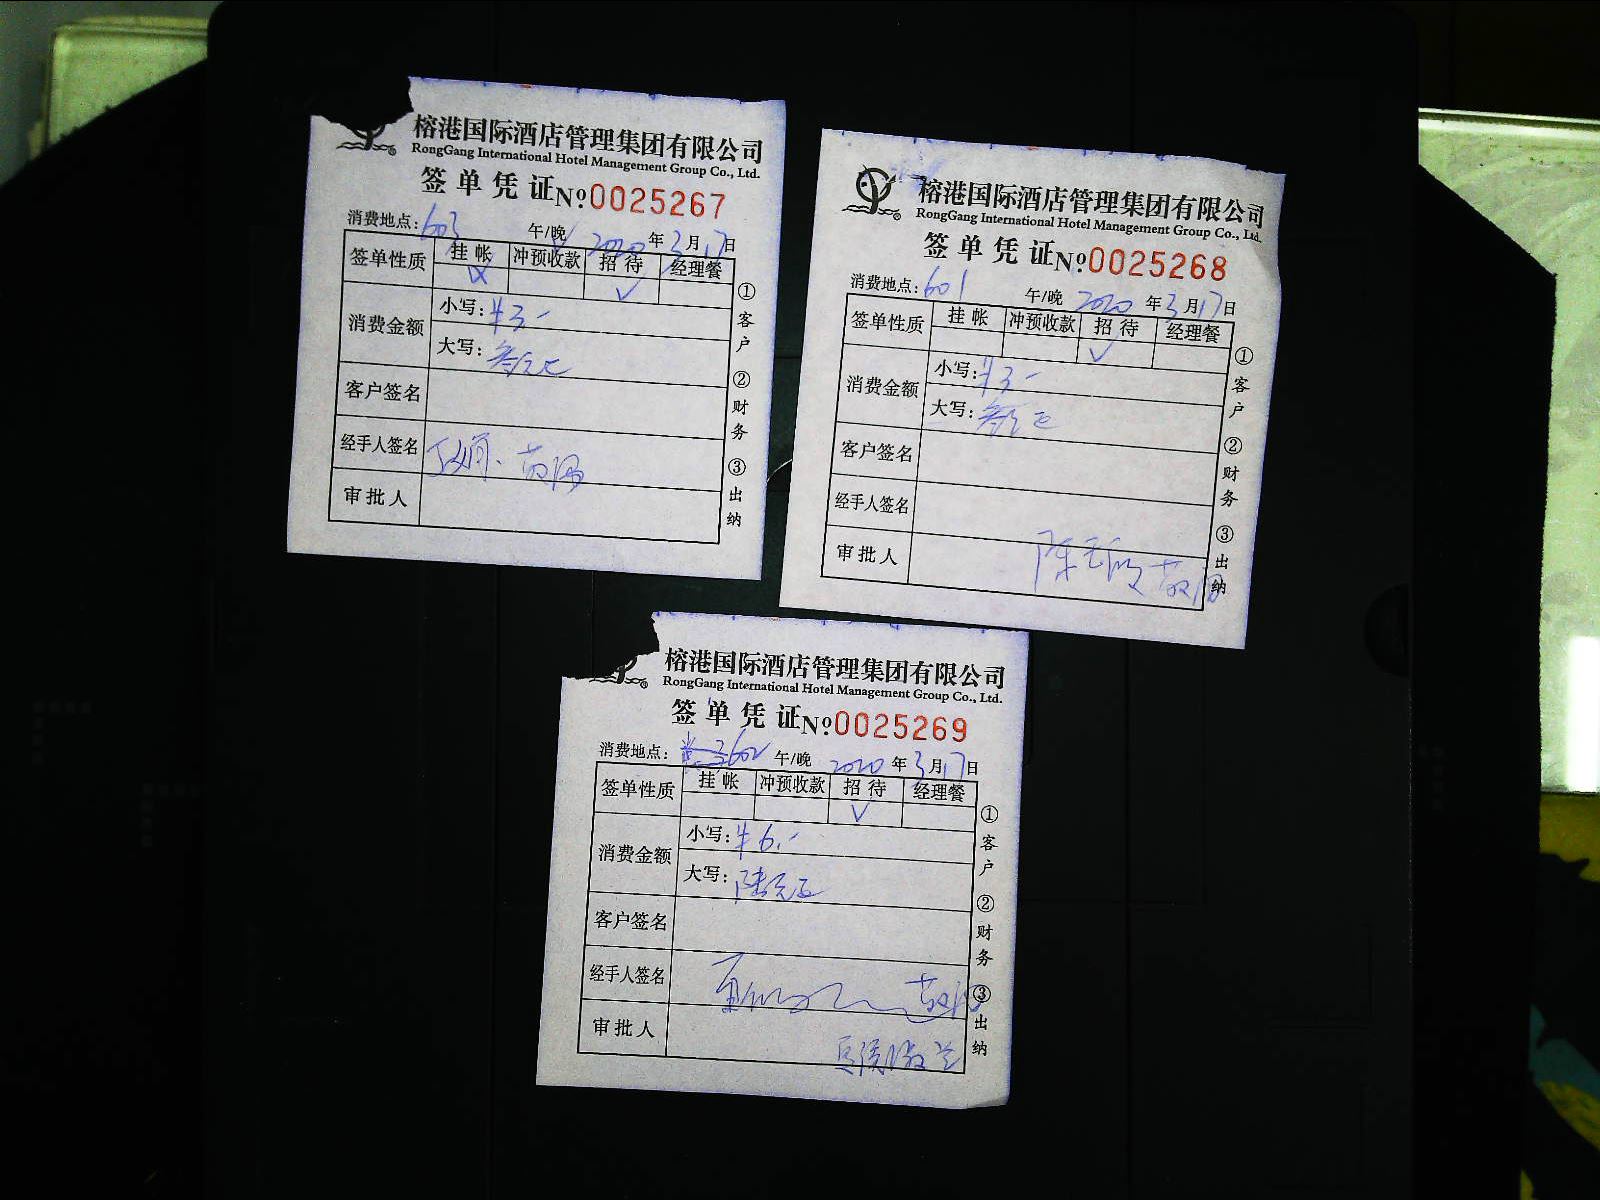 榕港国际酒店管理集团有限公司
RongGang International Hotel Management Group Co., Ltd.
签单凭证 №0025267
消费地点: 603 午/晚 2020 年 3 月 17 日
签单性质 挂帐 冲预收款 招待 经理餐
✓
消费金额 小写: ¥3-
大写: 叁元正
客户签名
经手人签名
审批人
①客户 ②财务 ③出纳
榕港国际酒店管理集团有限公司
RongGang International Hotel Management Group Co., Ltd.
签单凭证 №0025268
消费地点: 601 午/晚 2020 年 3 月 17 日
签单性质 挂帐 冲预收款 招待 经理餐
✓
消费金额 小写: ¥3-
大写: 叁元正
客户签名
经手人签名
审批人
①客户 ②财务 ③出纳
榕港国际酒店管理集团有限公司
RongGang International Hotel Management Group Co., Ltd.
签单凭证 №0025269
消费地点: 602 午/晚 2020 年 3 月 17 日
签单性质 挂帐 冲预收款 招待 经理餐
✓
消费金额 小写: ¥6.-
大写: 陆元正
客户签名
经手人签名
审批人
①客户 ②财务 ③出纳